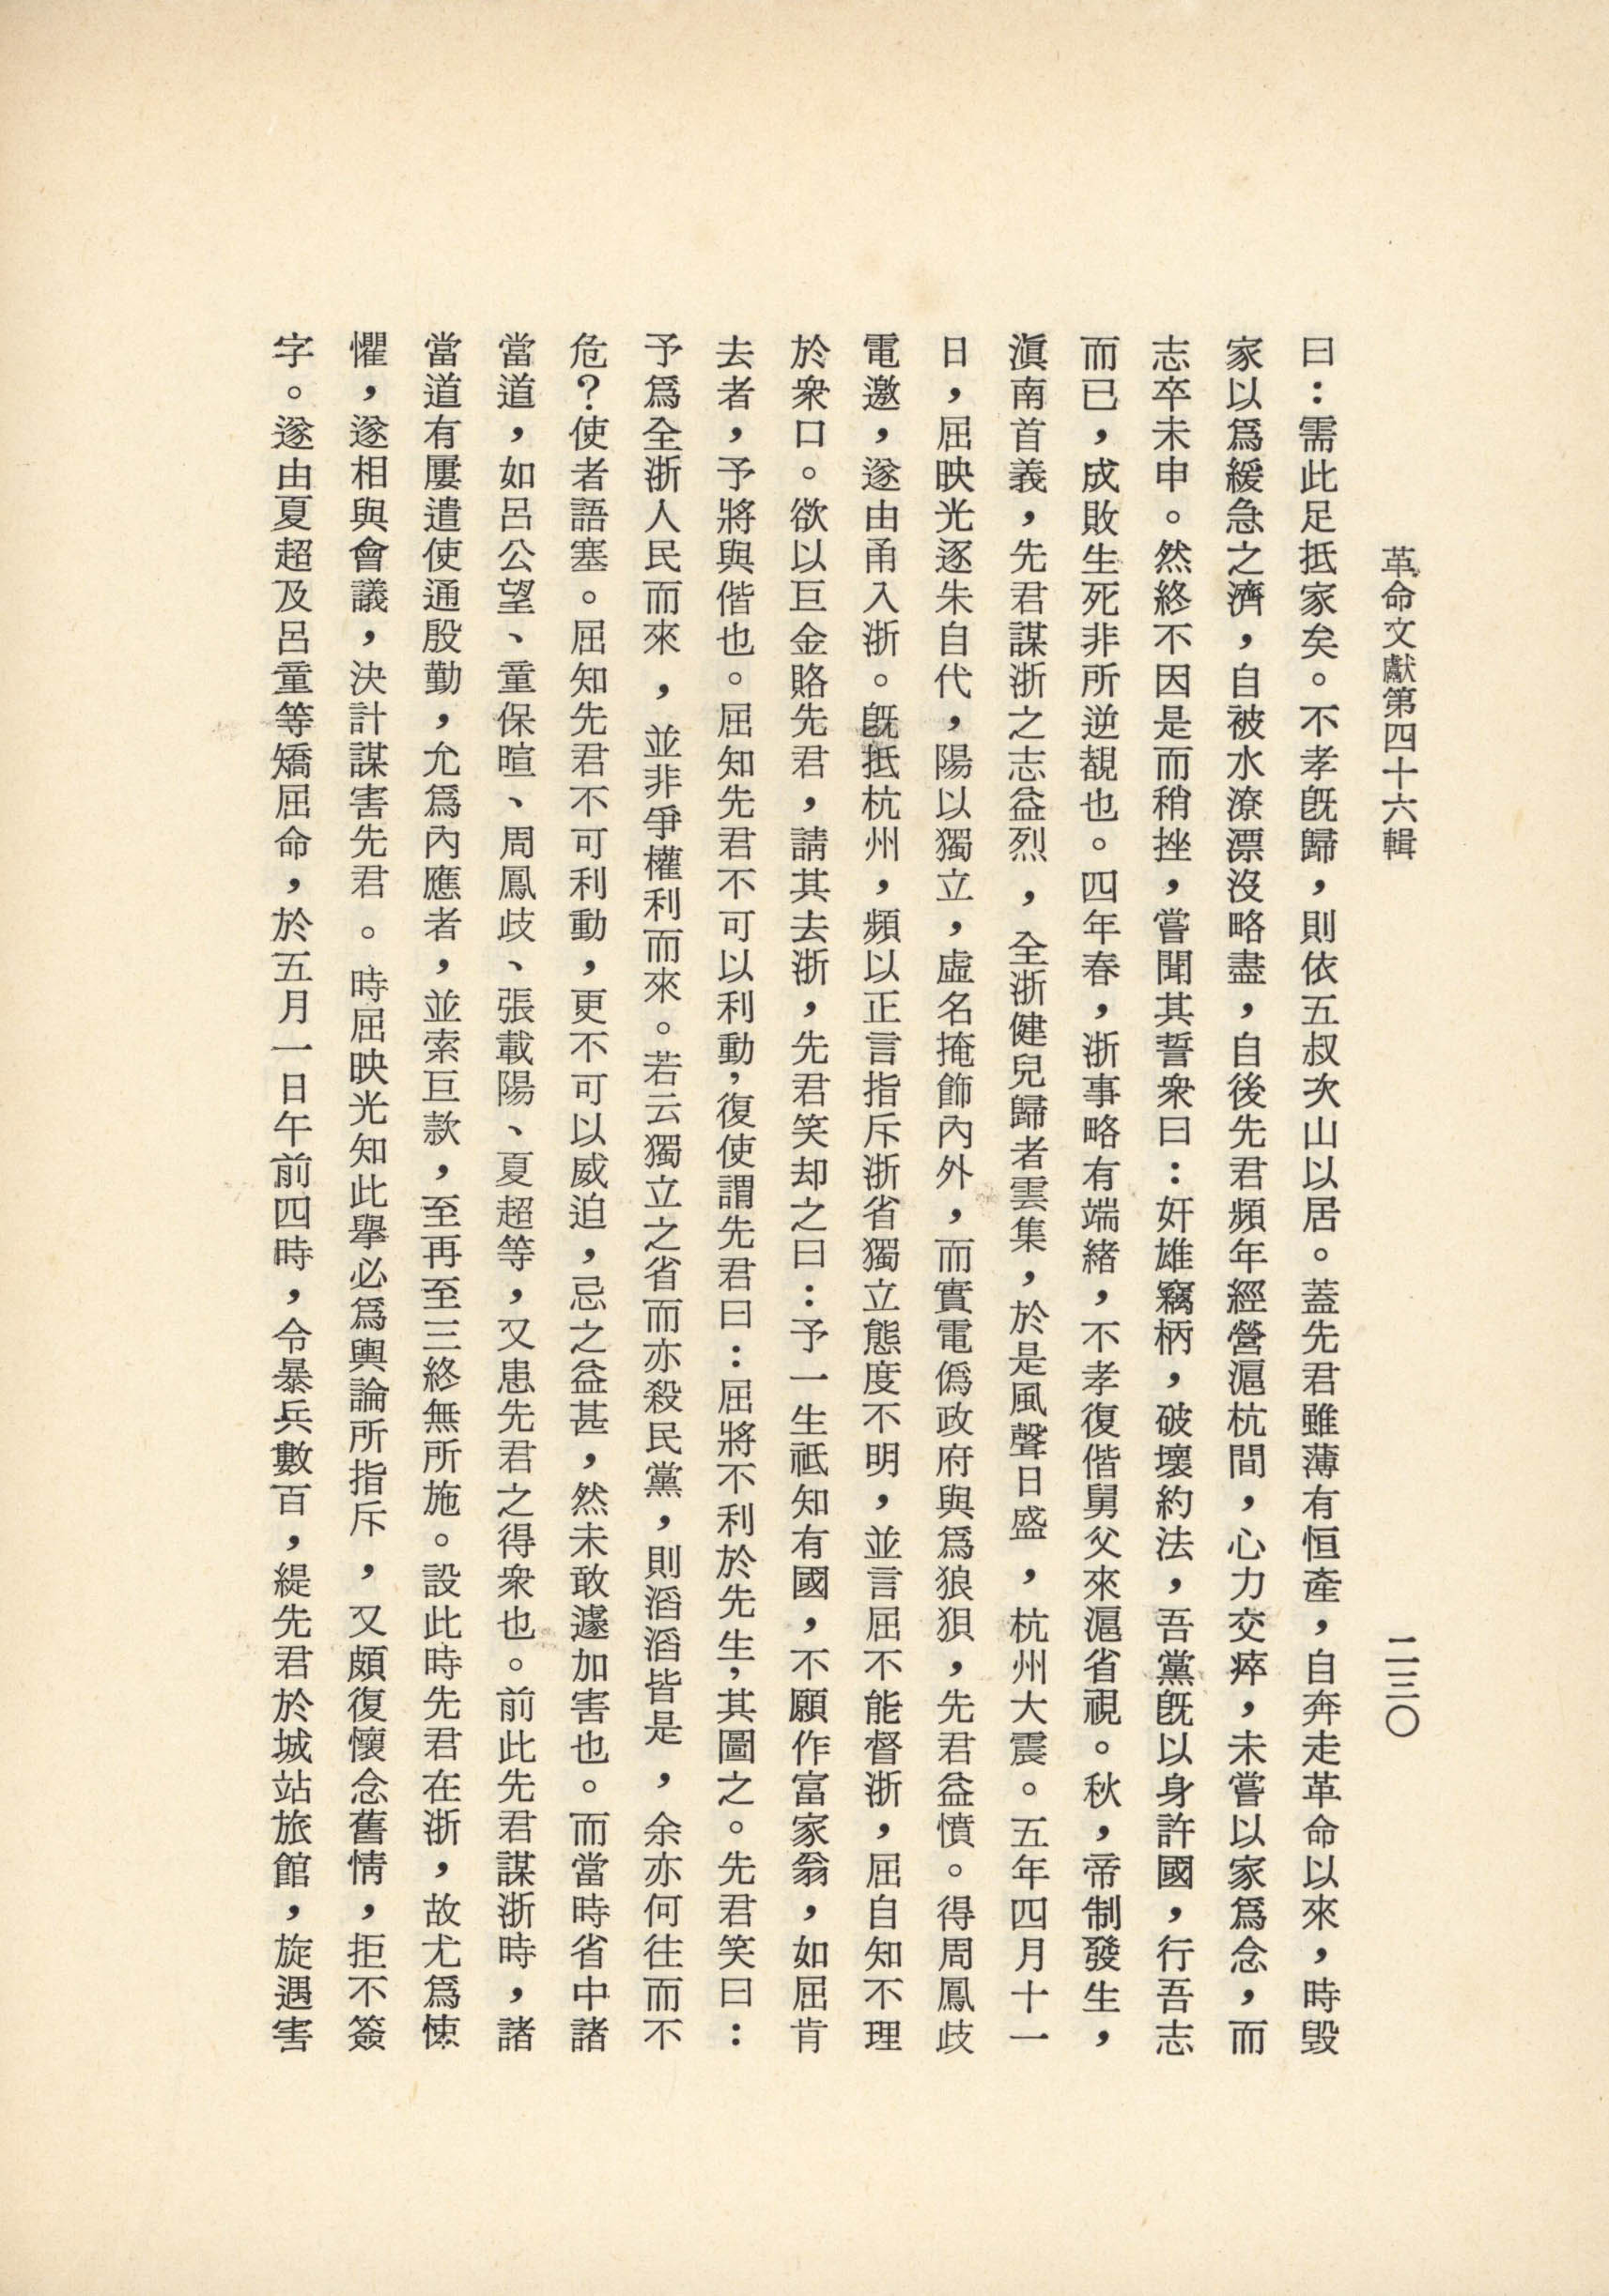 革命文獻第四十六輯
二三〇
曰：需此足抵家矣。不孝旣歸，則依五叔次山以居。蓋先君雖薄有恒產，自奔走革命以來，時毀
家以爲緩急之濟，自被水潦漂沒略盡，自後先君頻年經營滬杭間，心力交瘁，未嘗以家爲念，而
志卒未申。然終不因是而稍挫，嘗聞其誓衆曰：奸雄竊柄，破壞約法，吾黨旣以身許國，行吾志
而已，成敗生死非所逆覩也。四年春，浙事略有端緒，不孝復偕舅父來滬省視。秋，帝制發生，
滇南首義，先君謀浙之志益烈，全浙健兒歸者雲集，於是風聲日盛，杭州大震。五年四月十一
日，屈映光逐朱自代，陽以獨立，虛名掩飾內外，而實電僞政府與爲狼狽，先君益憤。得周鳳歧
電邀，遂由甬入浙。旣抵杭州，頻以正言指斥浙省獨立態度不明，並言屈不能督浙，屈自知不理
於衆口。欲以巨金賂先君，請其去浙，先君笑却之曰：予一生祗知有國，不願作富家翁，如屈肯
去者，予將與偕也。屈知先君不可以利動，復使謂先君曰：屈將不利於先生，其圖之。先君笑曰：
予爲全浙人民而來，並非爭權利而來。若云獨立之省而亦殺民黨，則滔滔皆是，余亦何往而不
危？使者語塞。屈知先君不可利動，更不可以威迫，忌之益甚，然未敢遽加害也。而當時省中諸
當道，如呂公望、童保暄、周鳳歧、張載陽、夏超等，又患先君之得衆也。前此先君謀浙時，諸
當道有屢遣使通殷勤，允爲內應者，並索巨款，至再至三終無所施。設此時先君在浙，故尤爲悚
懼，遂相與會議，決計謀害先君。時屈映光知此舉必爲輿論所指斥，又頗復懷念舊情，拒不簽
字。遂由夏超及呂童等矯屈命，於五月一日午前四時，令暴兵數百，緹先君於城站旅館，旋遇害